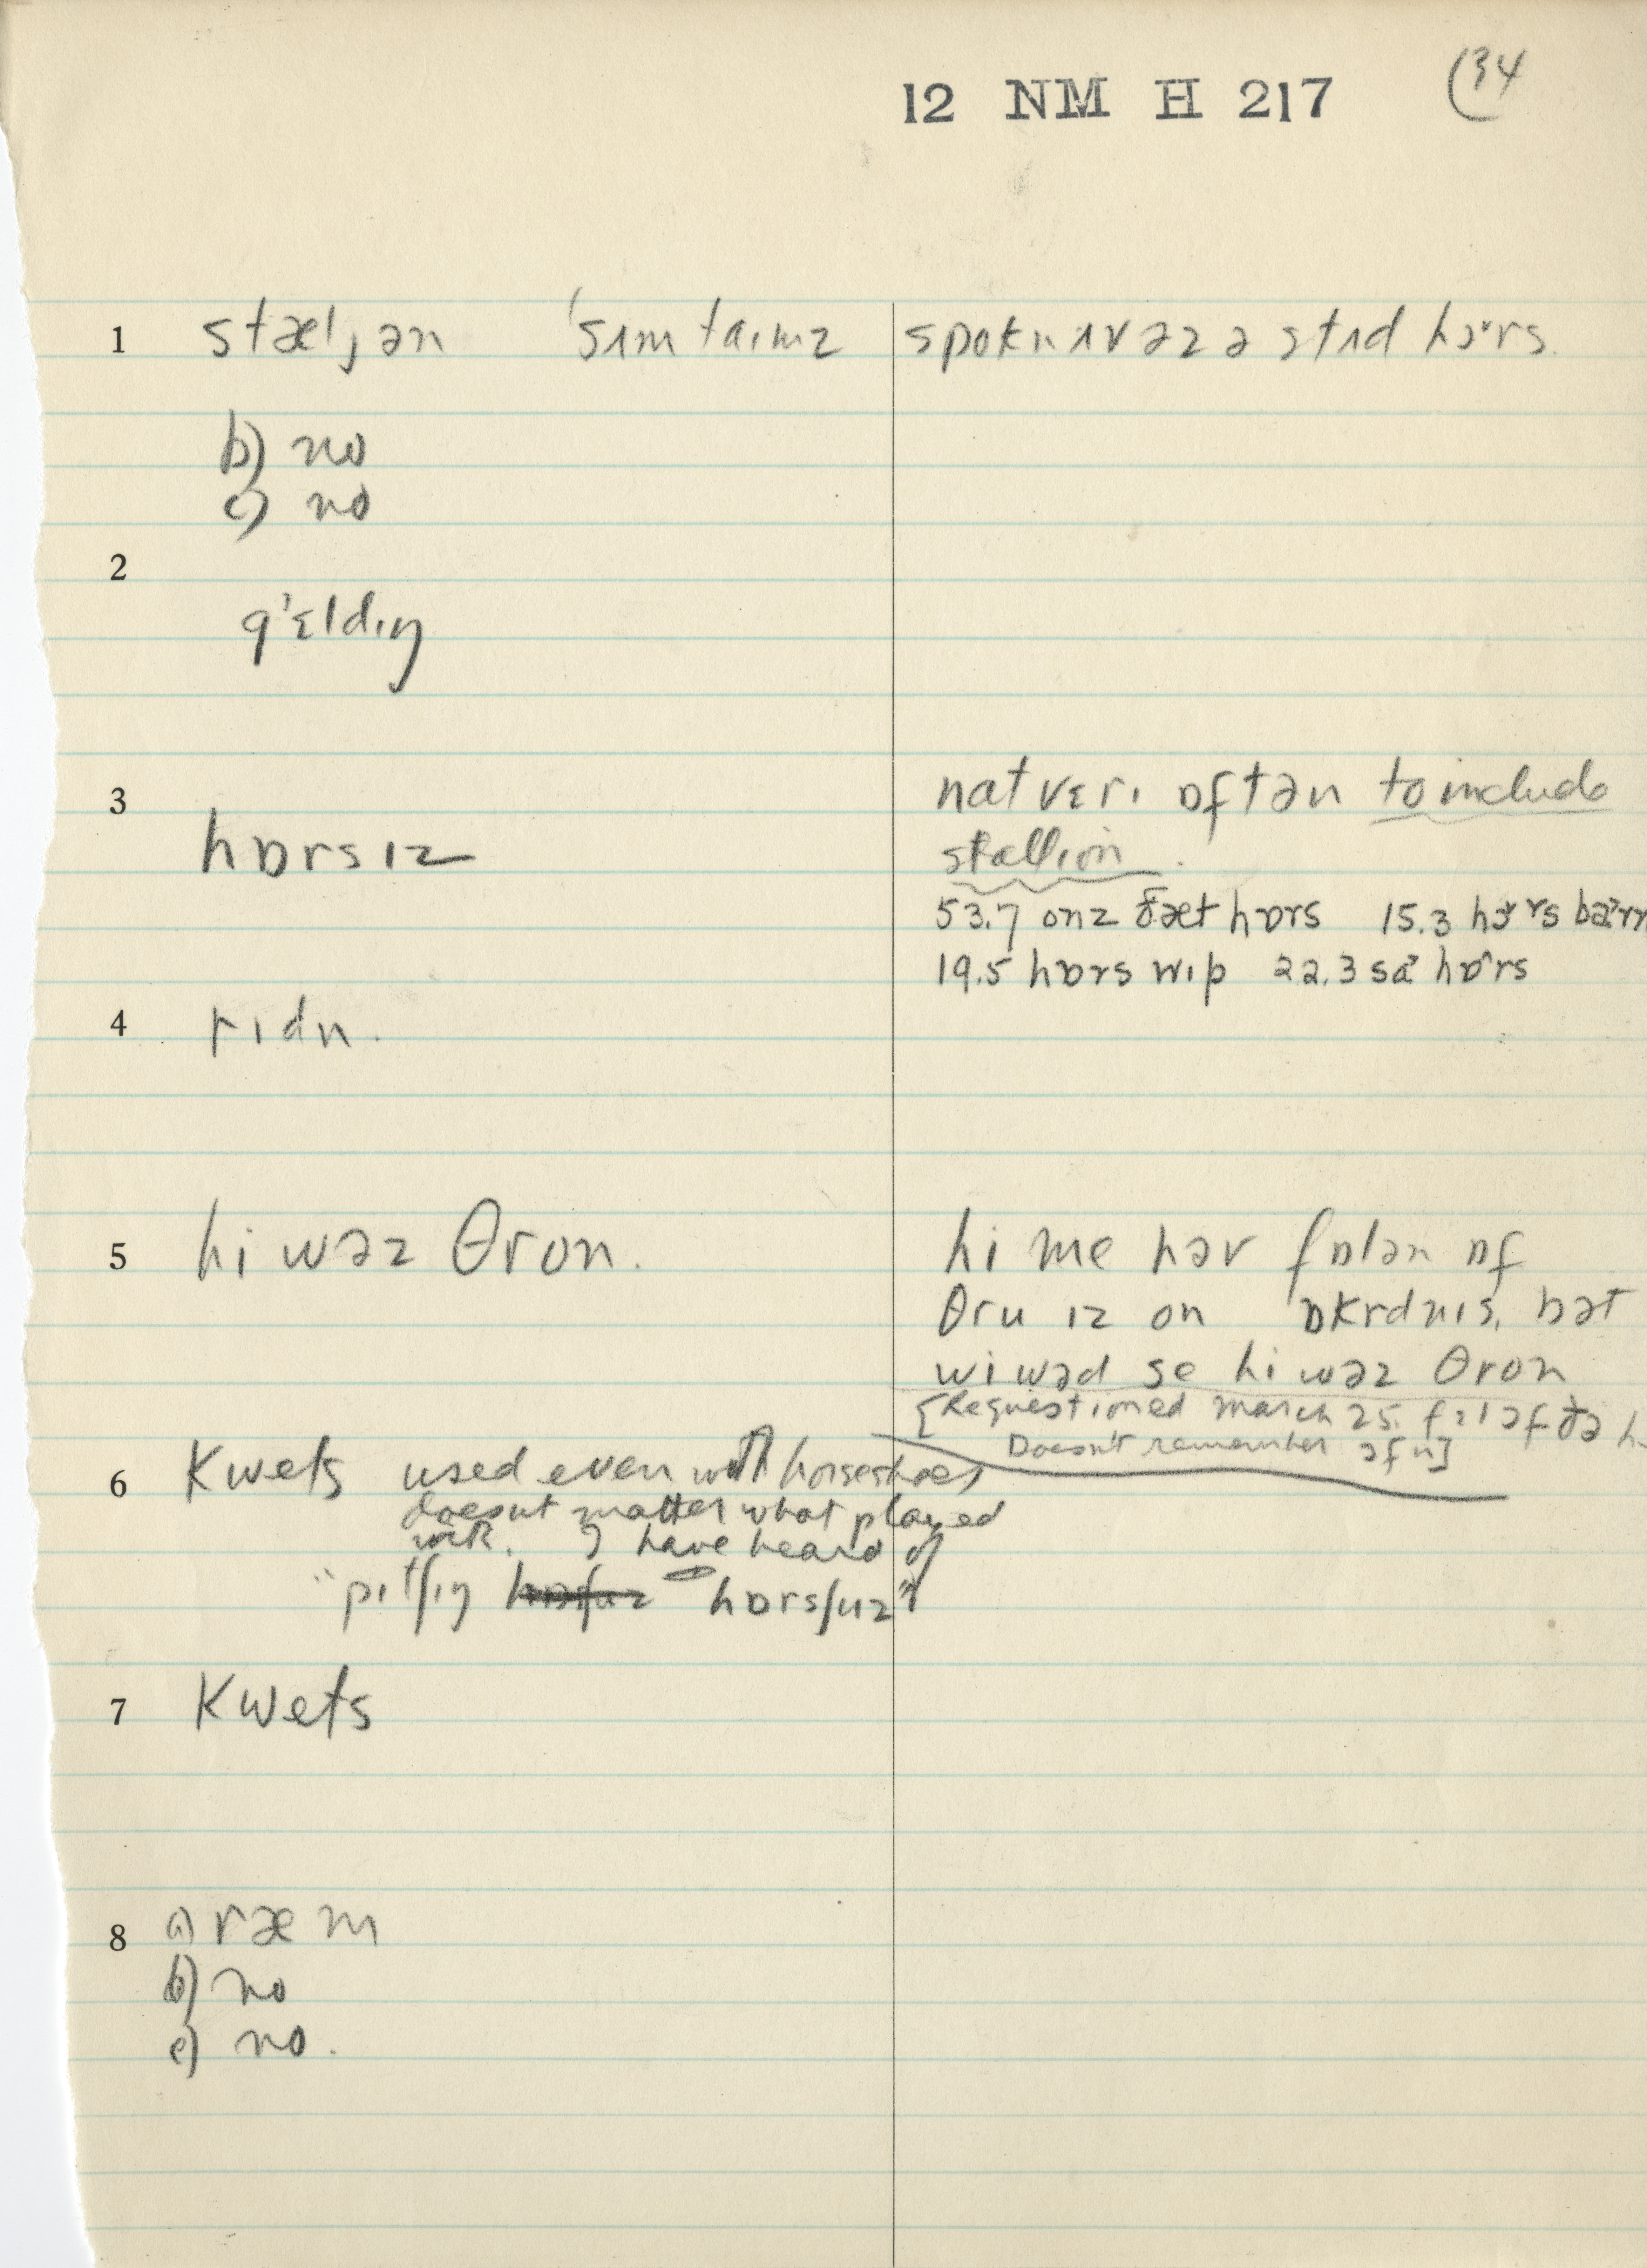 12 NM H 217 (34
1 stæljən 'sʌmtaɪmz spokn ʌv əz ə stʌd hɔrs.
b) no
c) no
2
g'ɛldɪŋ
3 hɒrsɪz
nat vɛrɪ ɒftən to include
stallion.
53.7 onz ðæt hɒrs 15.3 hɔrs
19.5 hɒrs wɪp 22.3 hɒrs
4 rɪdn.
5 hi wəz θron.
hi me həv fɒlən ɒf
θru ɪz on ɒkrdnɪs, bət
wi wəd se hi wəz θron
[Requestioned March 25. əf ðə
Doesn't remember əfn]
6 kwets used even with horseshoes
doesnt matter what played
with. I have heard of
"pɪtʃɪŋ hɒrsʃuz"
7 kwets
8 a) ræm
b) no
c) no.